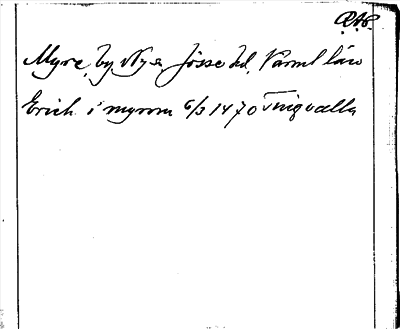 RAP.
Myre, by Ny s Jösse hd, Värml län
Erich i myrom 6/3 1470 Tingvalla